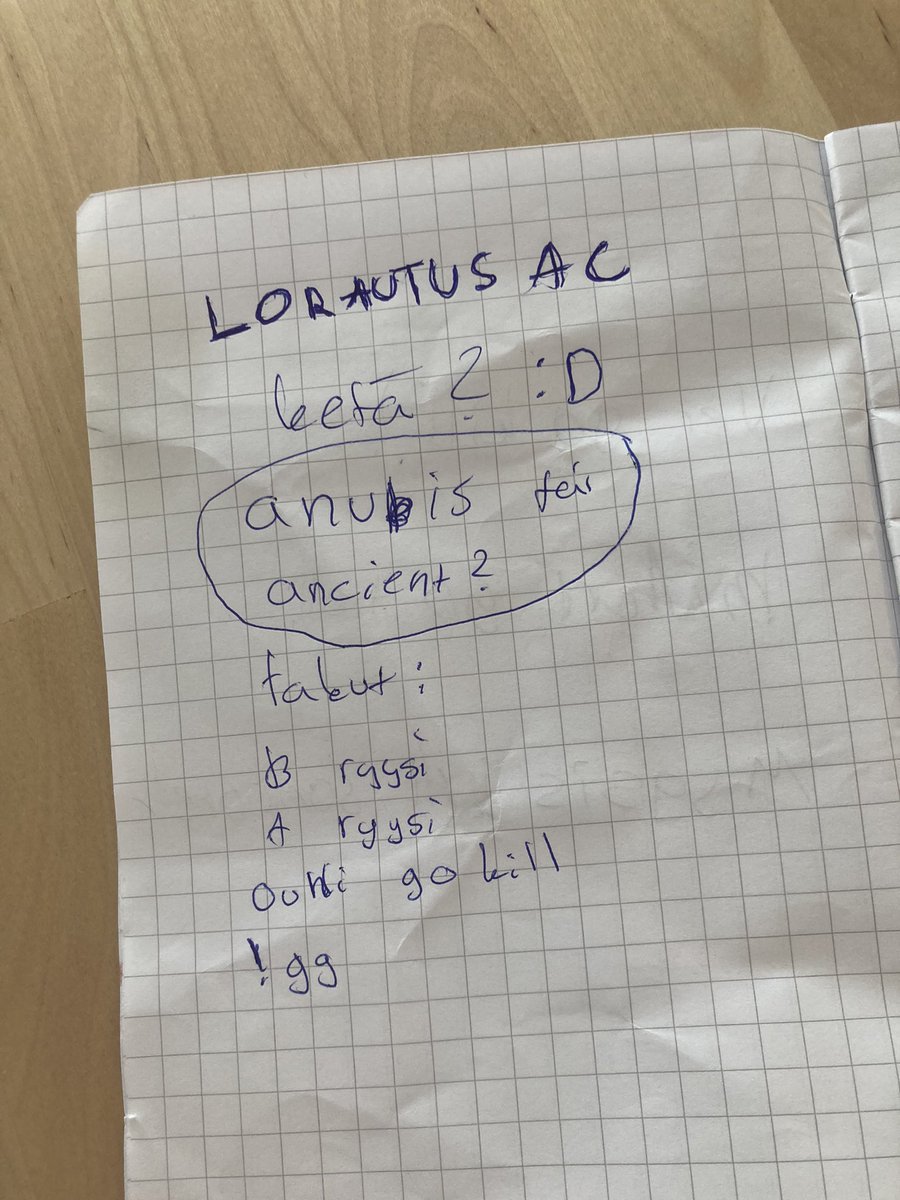 LORAUTUS AC
ketä ? :D
anubis tai
ancient?
takut:
B ryysi
A ryysi
Outti go kill
! gg